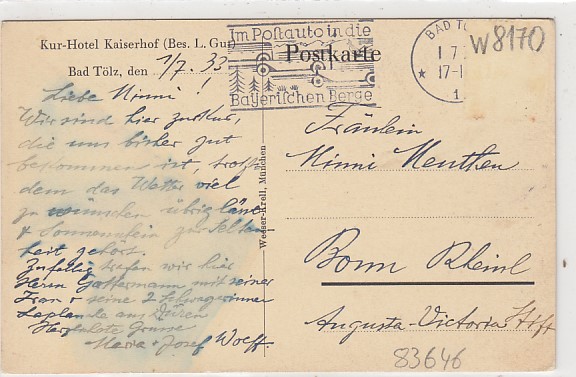 Kur-Hotel Kaiserhof (Bes. L. Gur)
Bad Tölz, den 1/7. 33
Liebe Minni!
Wir sind hier zur Kur,
die uns bisher gut
bekommen ist, trotz-
dem das Wetter viel
zu wünschen übrig lässt
& Sonnenschein zur Selten-
heit gehört.
Zufällig trafen wir hier
Herrn Gattermann mit seiner
Frau + seine 2 Schwägerinnen
aus Düren
Herzlichste Grüsse
Maria + Josef Wolff.
Weiser-Krell, München
Im Postauto in die
Bayerischen Berge
Postkarte
BAD TÖ
1 7.
17-1
1
W8170
Fräulein
Minni Menthen
Bonn Rheinl
Augusta-Victoria Stift
83646